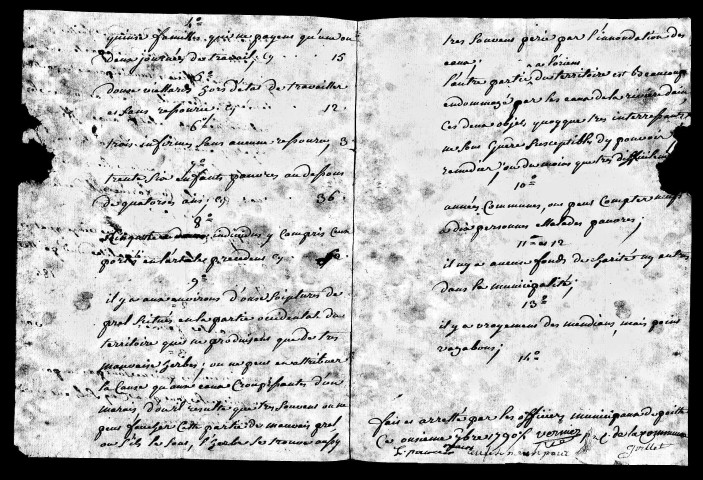 4°
quinze familles qui ne payent qu'une ou
deux journées de travail; cy 15
5°
douze viellards hors d'état de travailler
et sans ressource; cy 12.
6°
trois infirmes sans aucune ressource; 3
7°
trente six enfants pauvres au dessous
de quatorze ans; cy 36
8°
individus y compris ceux
portés en l'article précédent cy
9°
il y a aux environs d'onze seiptures de
prel scitués en la partie occidental du
territoire qui ne produisent que de tres
mauvaise herbes; on ne peut en attribuer
la cause qu'aux eaux croupissantes d'un
marais, d'ou il resulte que tres souvent on ne
peut faucher cette partie de mauvais prel
ou s'ils le sont, l'herbe se trouve
tres souvent perie par l'innondation des
eaux;
a l'orient
l'autre partie du territoire est beaucoup
endommagé par les eaux de la riviere d'ain,
Ces deux objets quoyque tres interressants
ne sont guere susceptible d'y pouvoir
remedier, ou du moins que tres difficilement
10°
années communes, on peut compter neuf
a dix personnes malades pauvres;
11° et 12
il ny a aucun fonds de charité ny autres
dans la municipalité;
13°
il y a vrayement des mendians, mais point
vagabons;
14°
fait et arretté par les officiers municipaux de
Ce onzieme 7bre 1790 vernier
Jaillet